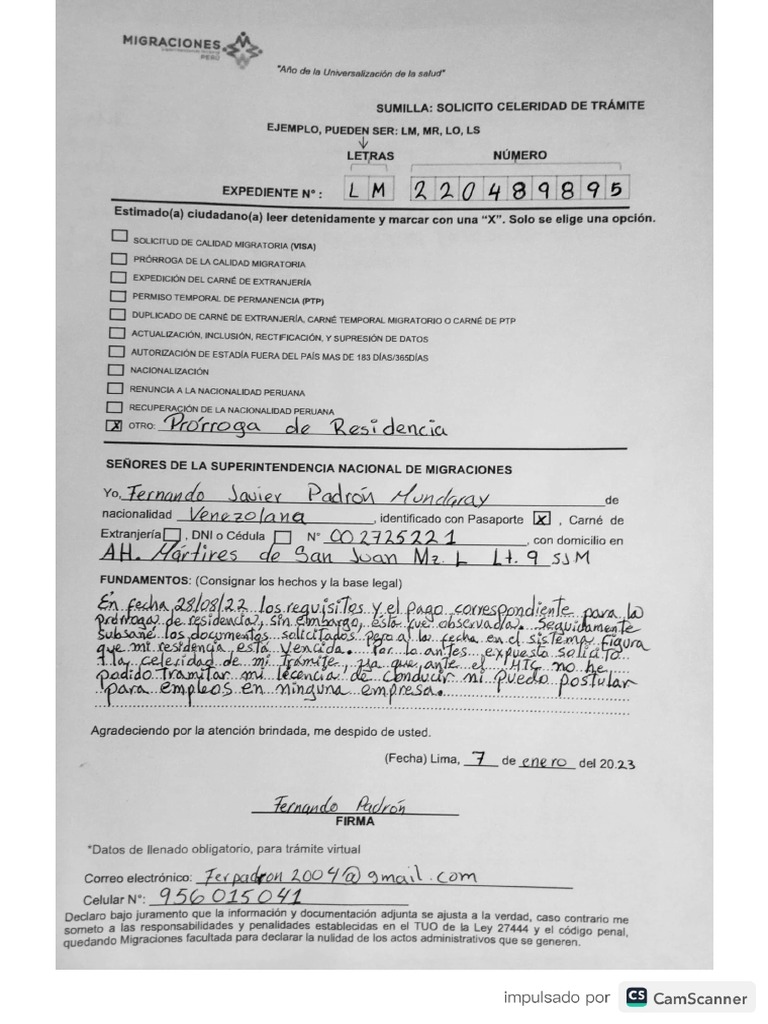 MIGRACIONES
PERÚ
"Año de la Universalización de la salud"
SUMILLA: SOLICITO CELERIDAD DE TRÁMITE
EJEMPLO, PUEDEN SER: LM, MR, LO, LS
LETRAS NÚMERO
EXPEDIENTE N° : L M 2 2 0 4 8 9 8 9 5
Estimado(a) ciudadano(a) leer detenidamente y marcar con una "X". Solo se elige una opción.
SOLICITUD DE CALIDAD MIGRATORIA (VISA)
PRÓRROGA DE LA CALIDAD MIGRATORIA
EXPEDICIÓN DEL CARNÉ DE EXTRANJERÍA
PERMISO TEMPORAL DE PERMANENCIA (PTP)
DUPLICADO DE CARNÉ DE EXTRANJERÍA, CARNÉ TEMPORAL MIGRATORIO O CARNÉ DE PTP
ACTUALIZACIÓN, INCLUSIÓN, RECTIFICACIÓN, Y SUPRESIÓN DE DATOS
AUTORIZACIÓN DE ESTADÍA FUERA DEL PAÍS MAS DE 183 DÍAS/365DÍAS
NACIONALIZACIÓN
RENUNCIA A LA NACIONALIDAD PERUANA
RECUPERACIÓN DE LA NACIONALIDAD PERUANA
X OTRO: Prórroga de Residencia
SEÑORES DE LA SUPERINTENDENCIA NACIONAL DE MIGRACIONES
Yo, Fernando Javier Padrón Mundaray de
nacionalidad Venezolana, identificado con Pasaporte X, Carné de
Extranjería, DNI o Cédula N° 002725221, con domicilio en
AH. Mártires de San Juan Mz. L Lt. 9 SJM
FUNDAMENTOS: (Consignar los hechos y la base legal)
En fecha 28/08/22 los requisitos y el pago correspondiente para la
prórroga de residencia, sin embargo, esta fue observada. Seguidamente
subsané los documentos solicitados pero a la fecha en el sistema figura
que mi residencia está vencida. Por lo antes expuesto solicito
la celeridad de mi trámite, ya que ante el MTC no he
podido tramitar mi lecencia de conducir ni puedo postular
para empleos en ninguna empresa.
Agradeciendo por la atención brindada, me despido de usted.
(Fecha) Lima, 7 de enero del 2023
Fernando Padrón
FIRMA
*Datos de llenado obligatorio, para trámite virtual
Correo electrónico: Ferpadron2004@gmail.com
Celular N°: 956015041
Declaro bajo juramento que la información y documentación adjunta se ajusta a la verdad, caso contrario me
someto a las responsabilidades y penalidades establecidas en el TUO de la Ley 27444 y el código penal,
quedando Migraciones facultada para declarar la nulidad de los actos administrativos que se generen.
impulsado por CS CamScanner